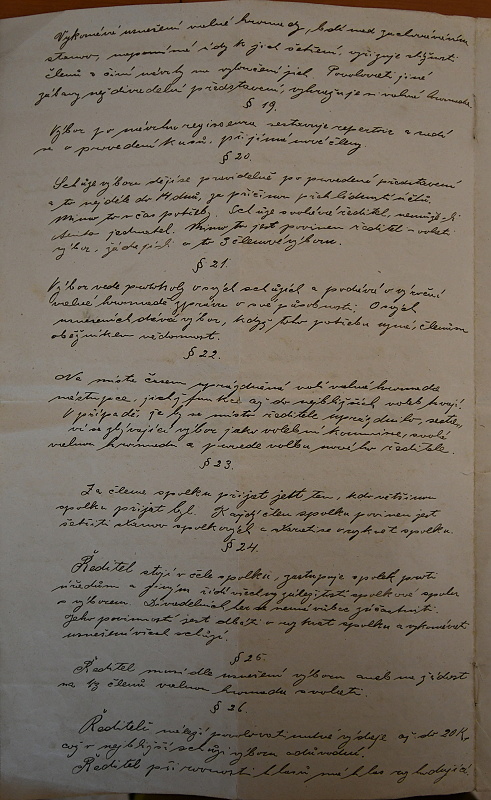 Vykonává usnesení valné hromady, bdí nad zachováváním
stanov, napomíná údy k jich šetření, vyřizuje stížnosti
členů a činí návrhy na vyloučení jich. Povolovati jiné
zábavy než divadelní představení, vyhrazuje si valná hromada.
§ 19.
Výbor po návrhu regisseura sestavuje repertoir a radí
se o provedení kusů, přijímá nové členy.
§ 20.
Schůze výboru dějí se pravidelně po provedeném představení
a to nejdéle do 14 dnů, za příčinou přehlédnutí účtů.
Mimo to v čas potřeby. Schůze svolává ředitel, nemůže-li
tento jednatel. Mimo to jest povinen ředitel svolati
výbor, žádají-li o to 3 členové výboru.
§ 21.
Výbor vede protokoly o svých schůzích a podává o výroční
valné hromadě zprávu o své působnosti. O svých
usneseních dává výbor, kdy toho potřebu uzná, členům
oběžníkem vědomost.
§ 22.
Na místa časem uprázdněná volí valná hromada
nástupce, jichž funkce až do nejbližších voleb trvají.
V případě, že by se místo ředitele uprázdnilo, sestaví
se zbývající výbor jako volební komise, svolá
valnou hromadu a provede volbu nového ředitele.
§ 23.
Za člena spolku přijat jest ten, kdo většinou
spolku přijat byl. Každý člen spolku povinen jest
šetřiti stanov spolkových a starati se o vzkvět spolku.
§ 24.
Ředitel stojí v čele spolku, zastupuje spolek proti
úřadům a jiným řídí všechny záležitosti spolkové spolu
s výborem. Divadelních her se nemá vůbec zúčastniti.
Jeho povinností jest dbáti o vzkvět spolku a vykonávati
usnesení všech schůzí.
§ 25.
Ředitel musí dle usnesení výboru aneb na žádost
na 1/3 členů valnou hromadu svolati.
§ 26.
Řediteli náleží povolovati nutné výdaje až do 20 K,
což v nejbližší schůzi výboru odůvodní.
Ředitel při rovnosti hlasů má hlas rozhodující.